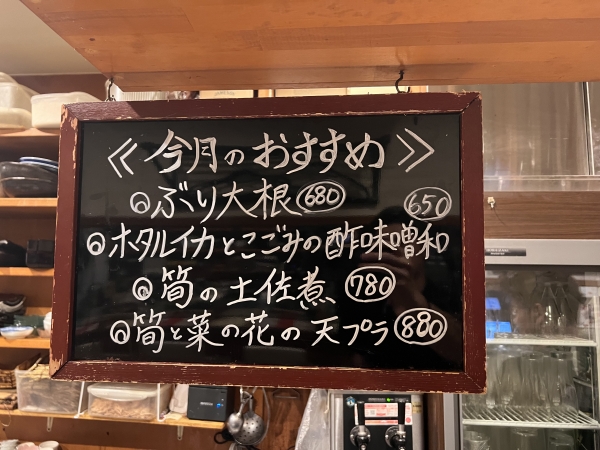 ≪今月のおすすめ≫
◎ぶり大根 680
◎ホタルイカとこごみの酢味噌和 650
◎筍の土佐煮 780
◎筍と菜の花の天プラ 880